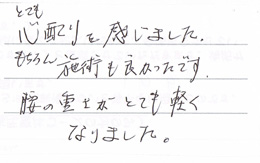 とても
心配りを感じました。
もちろん施術も良かったです。
腰の重さがとても軽く
なりました。